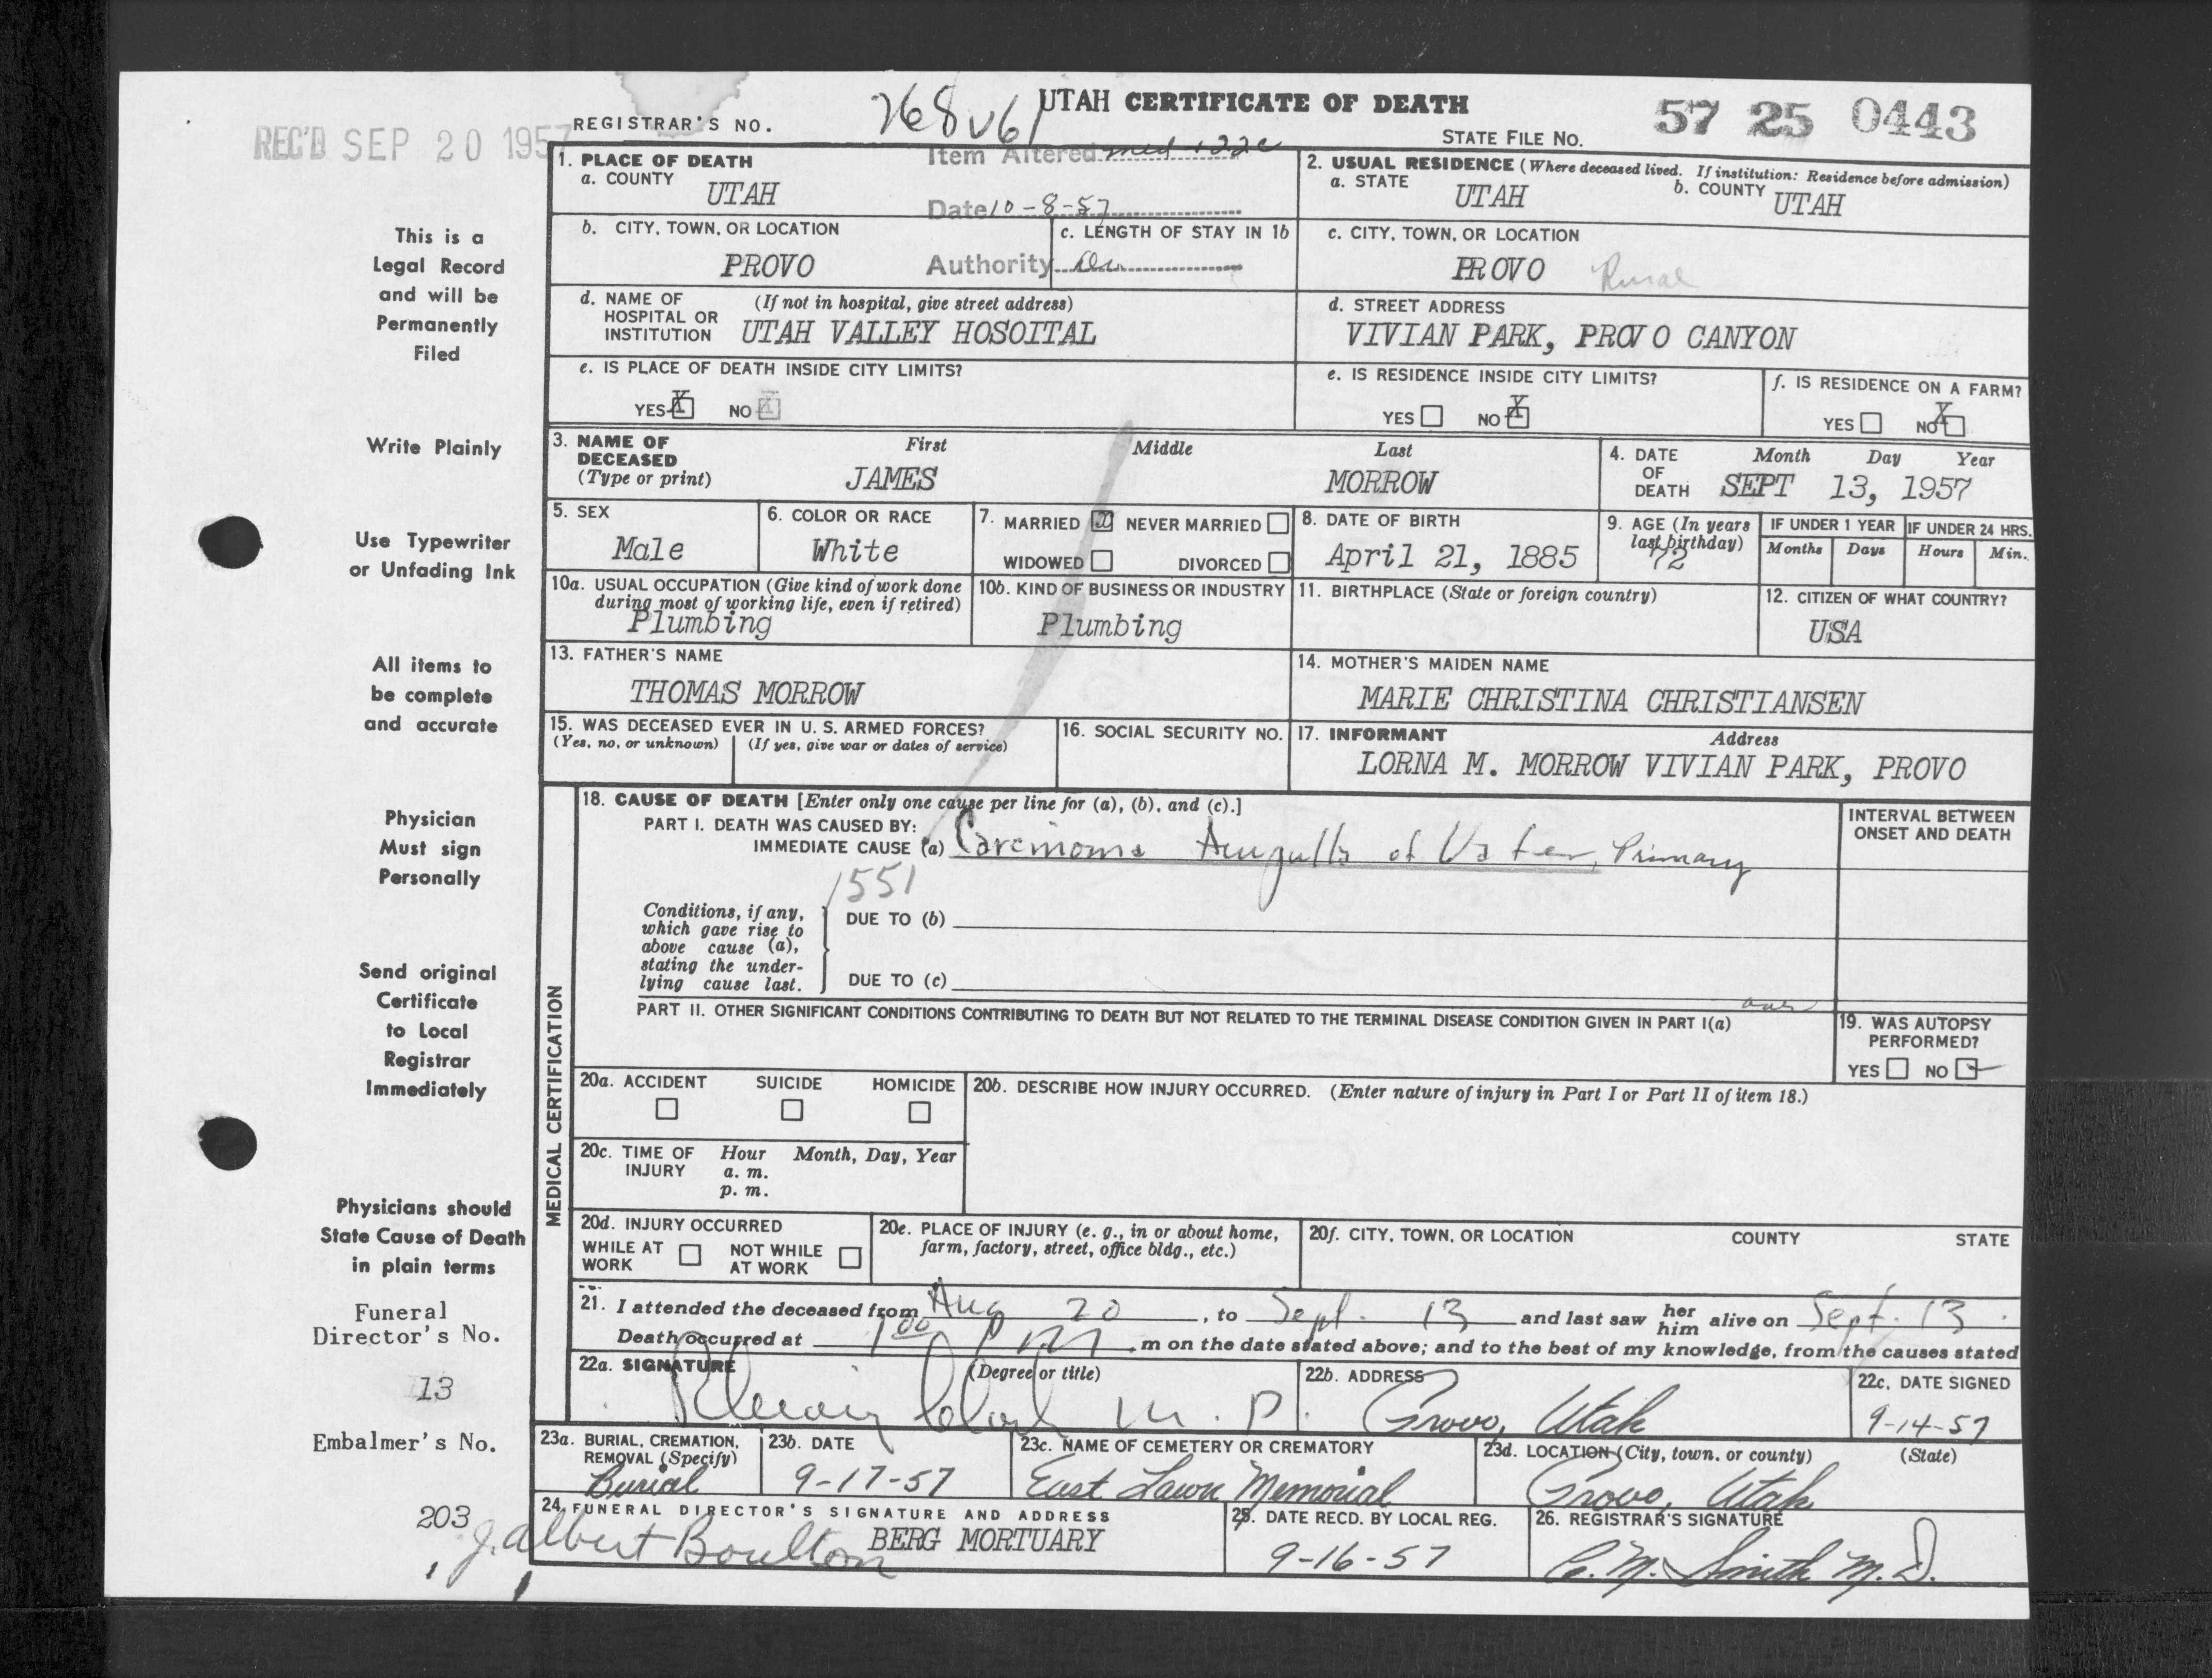 UTAH CERTIFICATE OF DEATH
REC'D SEP 20 1957
REGISTRAR'S NO.
STATE FILE NO. 57 25 0443
Item Altered
Date 10-8-57
Authority
1. PLACE OF DEATH
a. COUNTY
UTAH
2. USUAL RESIDENCE (Where deceased lived. If institution: Residence before admission)
a. STATE
UTAH
b. COUNTY
UTAH
b. CITY, TOWN, OR LOCATION
PROVO
c. LENGTH OF STAY IN 1b
c. CITY, TOWN, OR LOCATION
PROVO Rural
d. NAME OF HOSPITAL OR INSTITUTION (If not in hospital, give street address)
UTAH VALLEY HOSOITAL
d. STREET ADDRESS
VIVIAN PARK, PROVO CANYON
e. IS PLACE OF DEATH INSIDE CITY LIMITS?
YES X NO X
e. IS RESIDENCE INSIDE CITY LIMITS?
YES NO X
f. IS RESIDENCE ON A FARM?
YES NO X
3. NAME OF DECEASED (Type or print)
First Middle Last
JAMES MORROW
4. DATE OF DEATH
Month Day Year
SEPT 13, 1957
5. SEX
Male
6. COLOR OR RACE
White
7. MARRIED X NEVER MARRIED
WIDOWED DIVORCED
8. DATE OF BIRTH
April 21, 1885
9. AGE (In years last birthday)
72
IF UNDER 1 YEAR
Months Days
IF UNDER 24 HRS.
Hours Min.
10a. USUAL OCCUPATION (Give kind of work done during most of working life, even if retired)
Plumbing
10b. KIND OF BUSINESS OR INDUSTRY
Plumbing
11. BIRTHPLACE (State or foreign country)
12. CITIZEN OF WHAT COUNTRY?
USA
13. FATHER'S NAME
THOMAS MORROW
14. MOTHER'S MAIDEN NAME
MARIE CHRISTINA CHRISTIANSEN
15. WAS DECEASED EVER IN U. S. ARMED FORCES?
(Yes, no, or unknown) (If yes, give war or dates of service)
16. SOCIAL SECURITY NO.
17. INFORMANT Address
LORNA M. MORROW VIVIAN PARK, PROVO
MEDICAL CERTIFICATION
18. CAUSE OF DEATH [Enter only one cause per line for (a), (b), and (c).]
INTERVAL BETWEEN ONSET AND DEATH
PART I. DEATH WAS CAUSED BY:
IMMEDIATE CAUSE (a) Carcinoma Ampulla of Vater, Primary
1551
Conditions, if any, which gave rise to above cause (a), stating the underlying cause last.
DUE TO (b)
DUE TO (c)
PART II. OTHER SIGNIFICANT CONDITIONS CONTRIBUTING TO DEATH BUT NOT RELATED TO THE TERMINAL DISEASE CONDITION GIVEN IN PART I(a)
19. WAS AUTOPSY PERFORMED?
YES NO
20a. ACCIDENT SUICIDE HOMICIDE
20b. DESCRIBE HOW INJURY OCCURRED. (Enter nature of injury in Part I or Part II of item 18.)
20c. TIME OF INJURY
Hour Month, Day, Year
a. m.
p. m.
20d. INJURY OCCURRED
WHILE AT WORK NOT WHILE AT WORK
20e. PLACE OF INJURY (e. g., in or about home, farm, factory, street, office bldg., etc.)
20f. CITY, TOWN, OR LOCATION COUNTY STATE
21. I attended the deceased from Aug 20, to Sept. 13 and last saw her him alive on Sept. 13.
Death occurred at 1 00 P M .m on the date stated above; and to the best of my knowledge, from the causes stated
22a. SIGNATURE (Degree or title)
M. D.
22b. ADDRESS
Provo, Utah
22c. DATE SIGNED
9-14-57
23a. BURIAL, CREMATION, REMOVAL (Specify)
Burial
23b. DATE
9-17-57
23c. NAME OF CEMETERY OR CREMATORY
East Lawn Memorial
23d. LOCATION (City, town, or county) (State)
Provo, Utah
24. FUNERAL DIRECTOR'S SIGNATURE AND ADDRESS
J. Albert Boulton BERG MORTUARY
25. DATE RECD. BY LOCAL REG.
9-16-57
26. REGISTRAR'S SIGNATURE
C. M. Smith M. D.
This is a
Legal Record
and will be
Permanently
Filed
Write Plainly
Use Typewriter
or Unfading Ink
All items to
be complete
and accurate
Physician
Must sign
Personally
Send original
Certificate
to Local
Registrar
Immediately
Physicians should
State Cause of Death
in plain terms
Funeral
Director's No.
13
Embalmer's No.
203